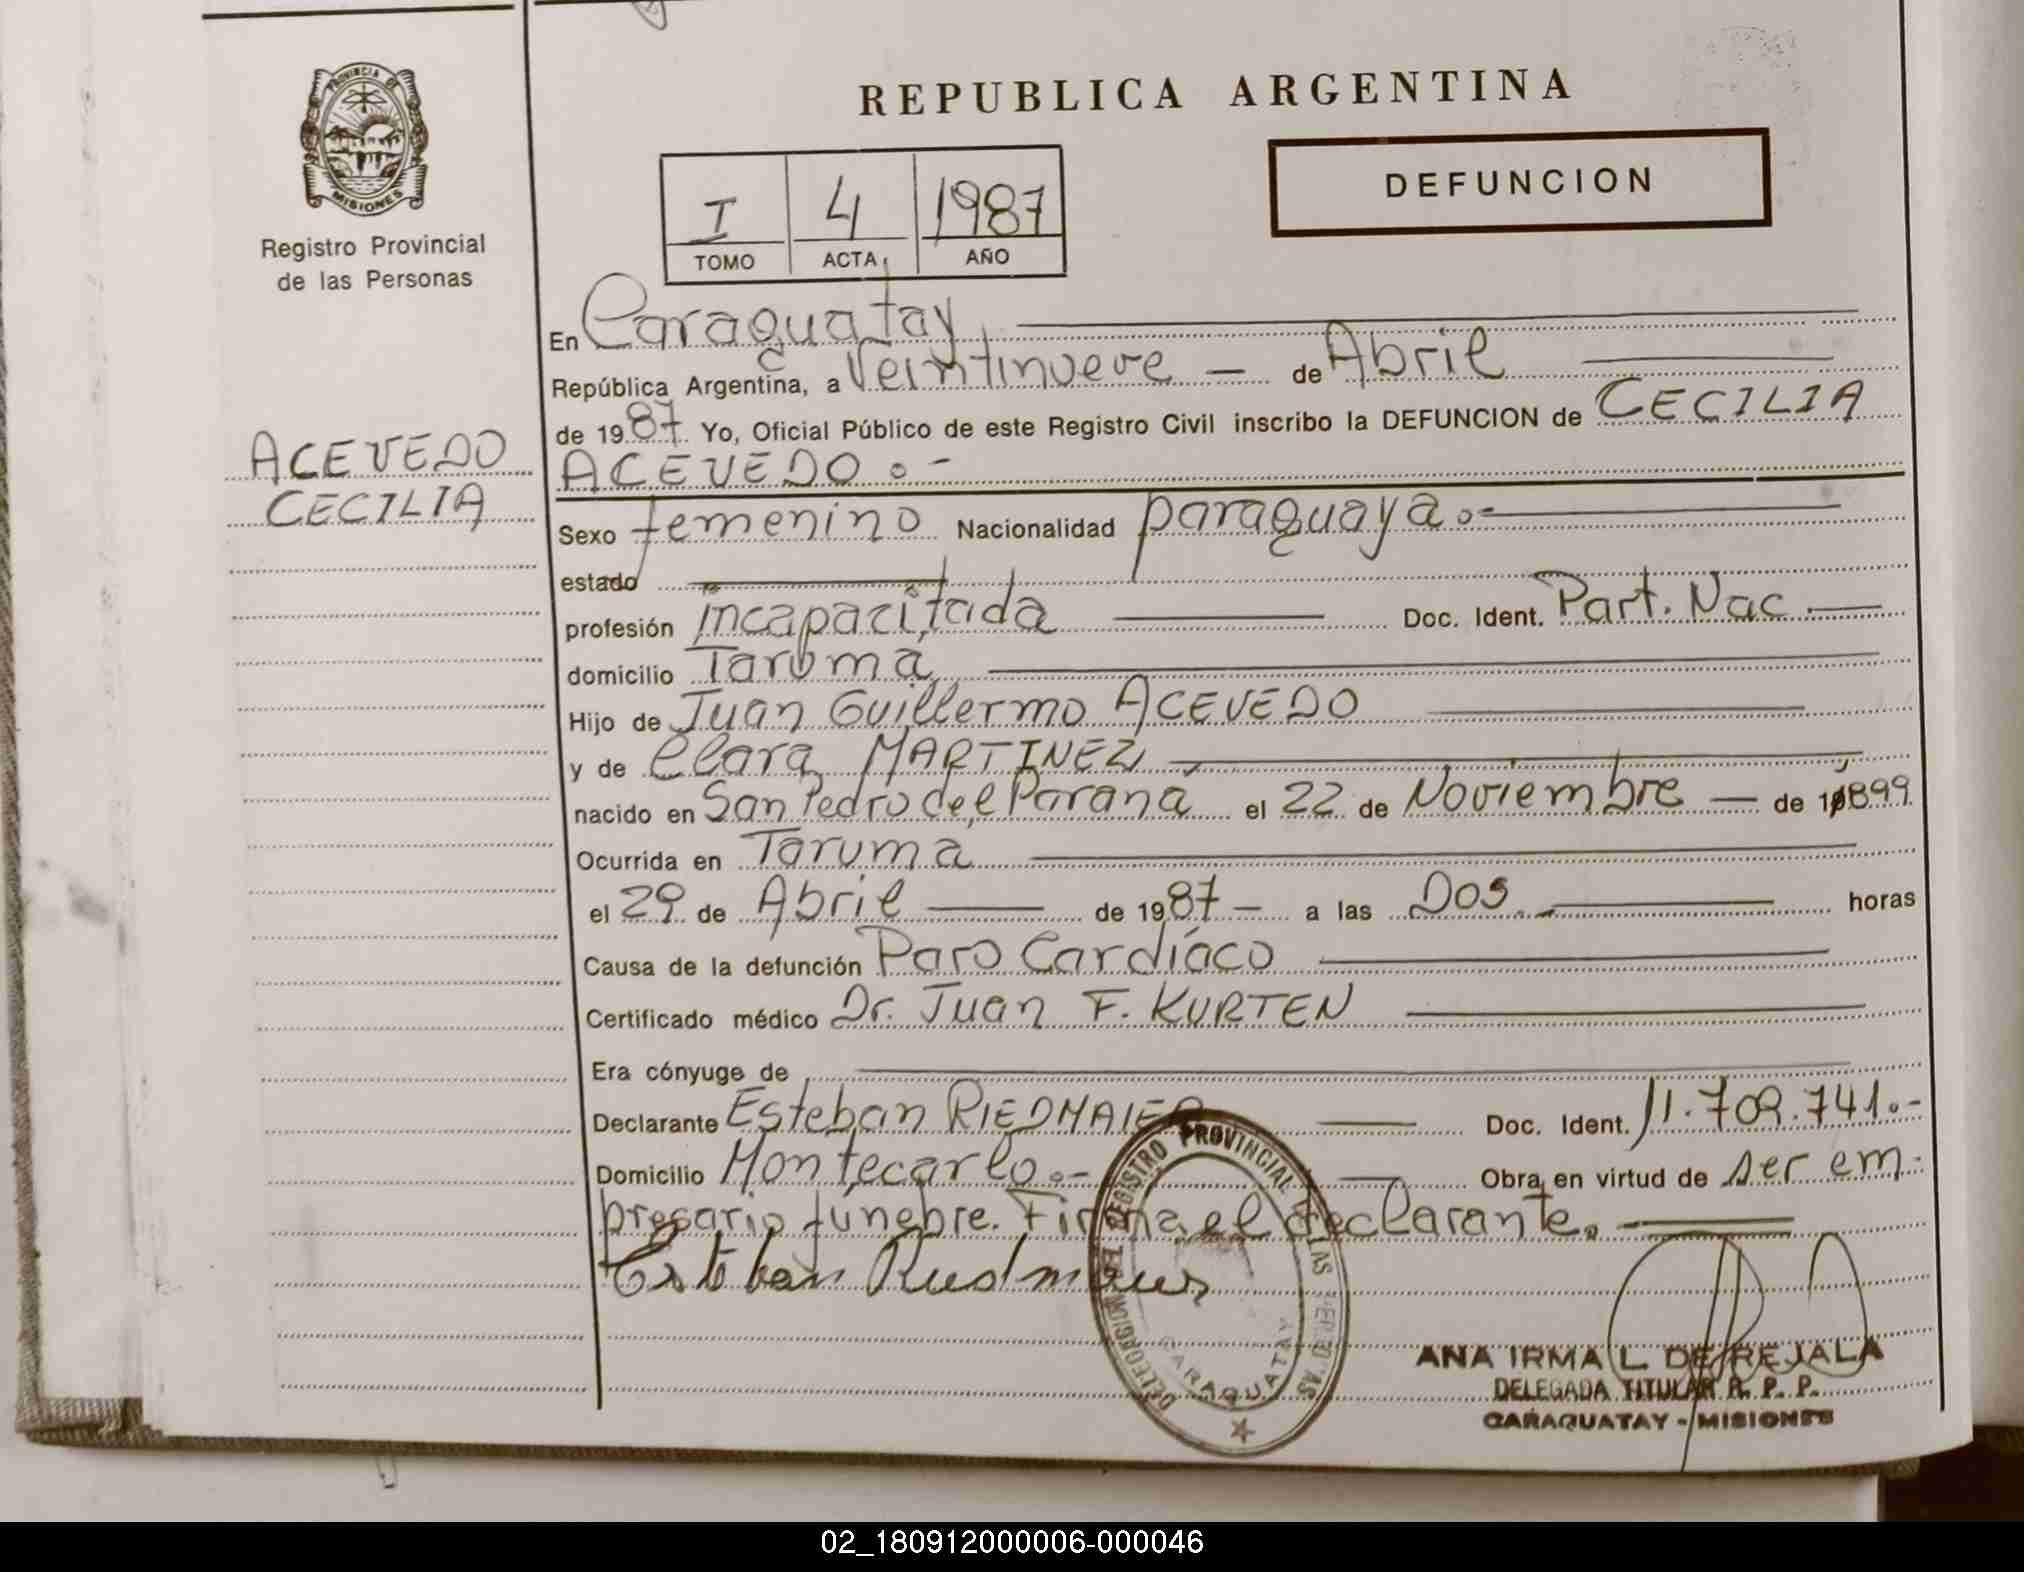 REPUBLICA ARGENTINA
PROVINCIA DE
MISIONES
Registro Provincial
de las Personas
DEFUNCION
I 4 1987
TOMO ACTA AÑO
En Caraguatay
República Argentina, a Veintinueve — de Abril
de 1987 Yo, Oficial Público de este Registro Civil inscribo la DEFUNCION de CECILIA
ACEVEDO.-
ACEVEDO
CECILIA
Sexo femenino Nacionalidad paraguaya.-
estado
profesión incapacitada Doc. Ident. Part. Nac.
domicilio Taruma
Hijo de Juan Guillermo ACEVEDO
y de Clara MARTINEZ
nacido en San Pedro del Paraná el 22 de Noviembre — de 1899
Ocurrida en Taruma
el 29 de Abril — de 1987 — a las Dos horas
Causa de la defunción Paro Cardíaco
Certificado médico Dr. Juan F. KURTEN
Era cónyuge de
Declarante Esteban RIEDMAIER Doc. Ident. 11.709.741.-
Domicilio Montecarlo.- Obra en virtud de ser em-
presario fúnebre. Firma el declarante.
Esteban Riedmaier
DELEGACION DEL REGISTRO PROVINCIAL DE LAS PERSONAS
CARAGUATAY
ANA IRMA L. DE REJALA
DELEGADA TITULAR R. P. P.
CARAGUATAY - MISIONES
02_180912000006-000046